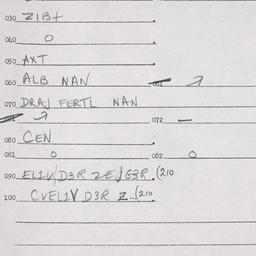 030 ZIBT
040 O
050 AXT
060 ALB NAN 061
070 DRAJ FERTL NAN
072 —
080 CEN
081 O 082 O
090 EL2V D3R ZEJ G3R (210
100 CVEL2V D3R Z...(210